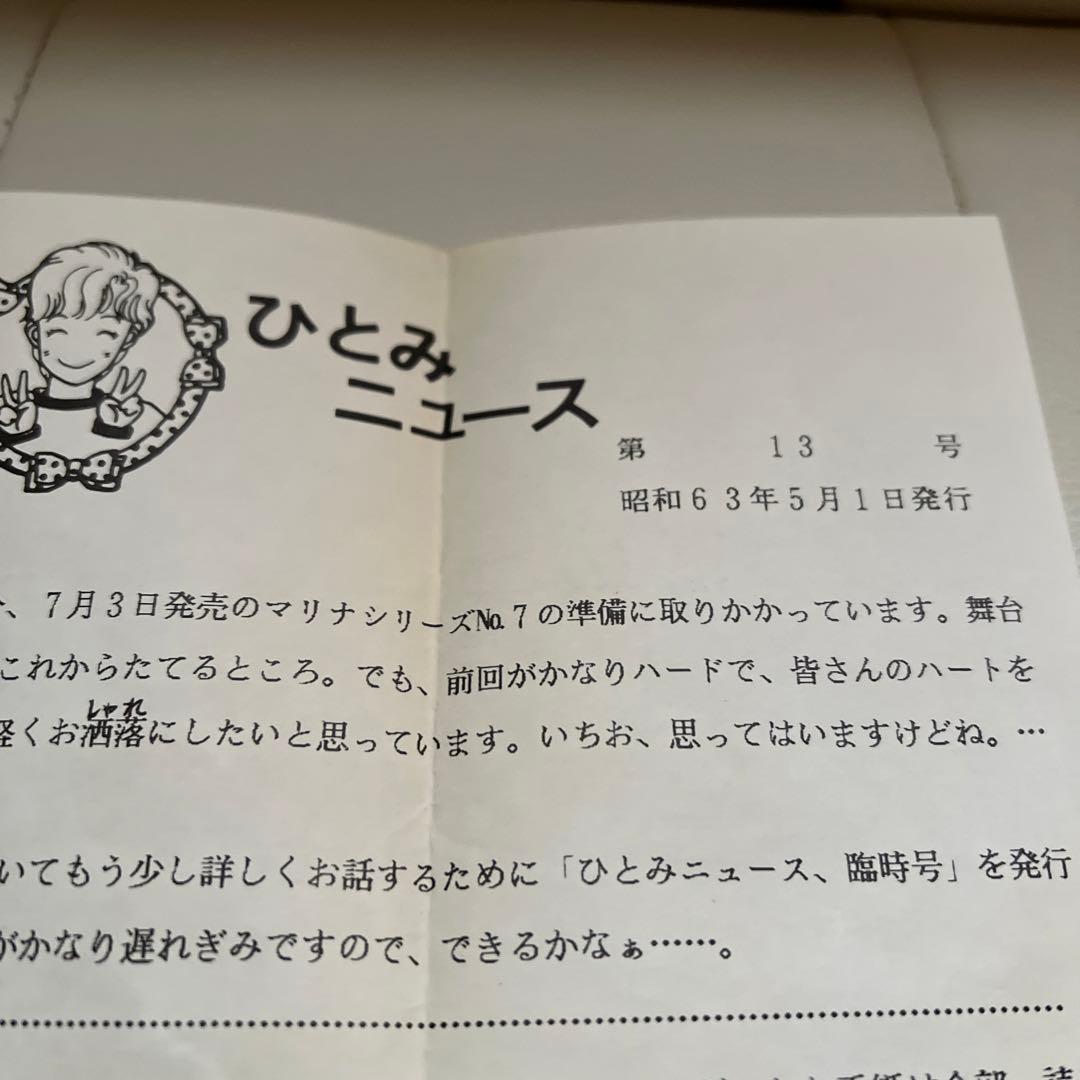 ひとみ
ニュース
第 13 号
昭和63年5月1日発行
、7月3日発売のマリナシリーズNo.7の準備に取りかかっています。舞台
これからたてるところ。でも、前回がかなりハードで、皆さんのハートを
しゃれ
軽くお洒落にしたいと思っています。いちお、思ってはいますけどね。…
いてもう少し詳しくお話するために「ひとみニュース、臨時号」を発行
がかなり遅れぎみですので、できるかなぁ……。